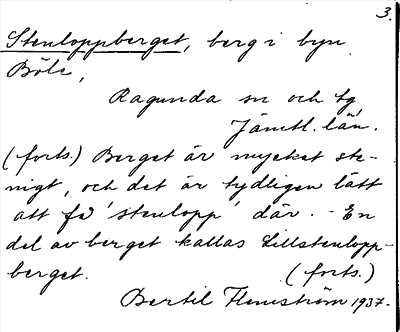 3.
Stenloppberget, berg i byn
Böle,
Ragunda sn och tg
Jämtl. län.
(forts.) Berget är mycket ste-
nigt, och det är tydligen lätt
att få 'stenlopp' där. - En
del av berget kallas Lillstenlopp-
berget. (forts.)
Bertil Flemström 1937.